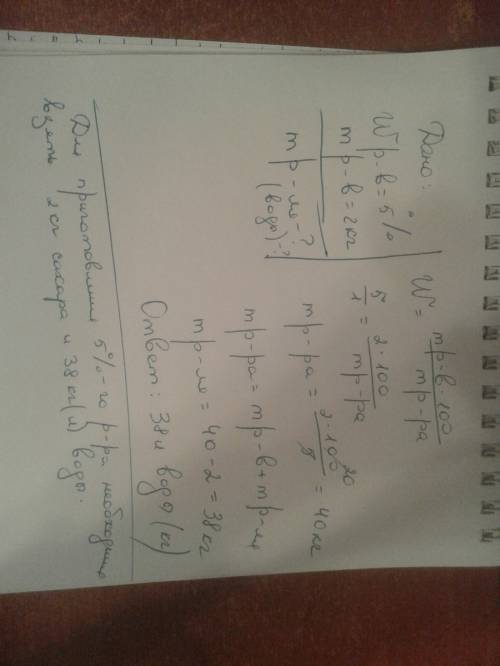 Дано:
Wр-в = 5%
mр-в = 2кг
mр-ля - ?
(воды) - ?
W = mр-в · 100 / mр-ра
5/1 = 2 · 100 / mр-ра
mр-ра = 2 · 100 20 / 5 = 40кг
mр-ра = mр-в + mр-ля
mр-ля = 40 - 2 = 38кг
Ответ: 38л воды (кг)
Для приготовления 5%-го р-ра необходимо
взять 2кг сахара и 38кг(л) воды.